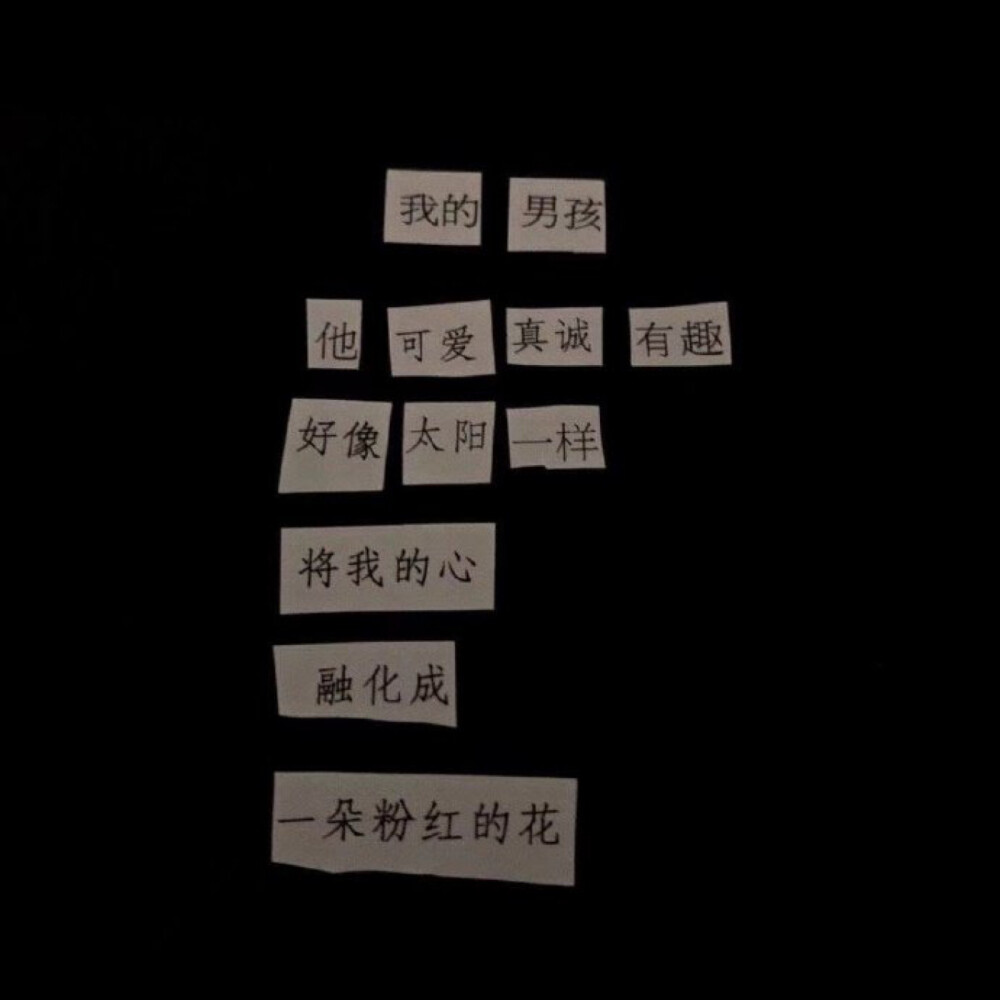 我的 男孩
他 可爱 真诚 有趣
好像 太阳 一样
将我的心
融化成
一朵粉红的花